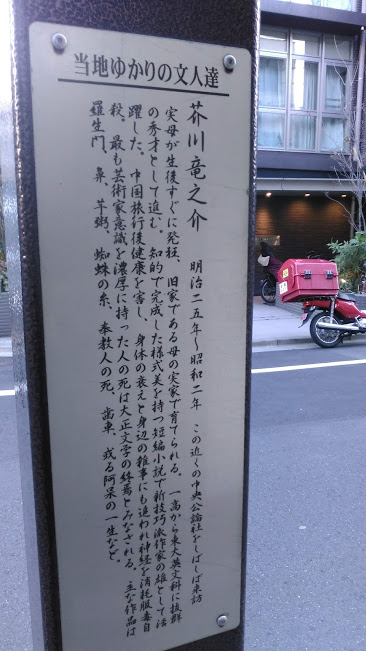 当地ゆかりの文人達
芥川竜之介　明治二五年〜昭和二年　この近くの中央公論社をしばしば来訪
実母が生後すぐに発狂、旧家である母の実家で育てられる。一高から東大英文科に抜群
の秀才として進む。知的で完成した様式美を持つ短編小説で新技巧派作家の雄として活
躍した。中国旅行後健康を害し、身体の衰えと身辺の雑事にも追われ神経を消耗服毒自
殺。最も芸術家意識を濃厚に持った人の死は大正文学の終焉とみなされる。主な作品は
羅生門、鼻、芋粥、蜘蛛の糸、奉教人の死、歯車、或る阿呆の一生など。